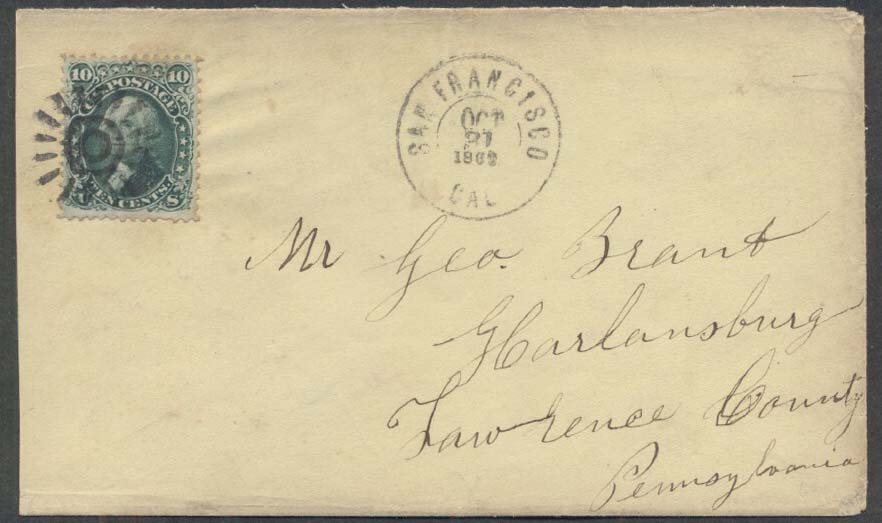 10 10
U.S. POSTAGE
TEN CENTS.
U S
SAN FRANCISCO
OCT
CAL
Mr Geo. Brant
Harlansburg
Lawrence County
Pennsylvania